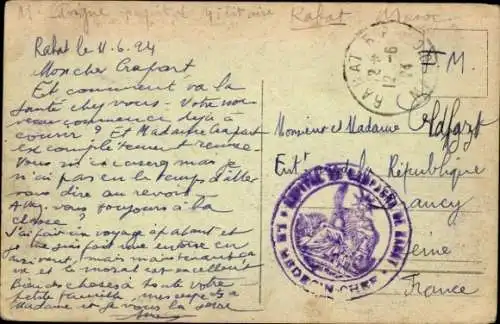 Hôpital Militaire Rabat Maroc
Rabat le 11.6.24
Mon cher Crapart
Et comment va la
santé chez vous - Votre nou
veau commence déjà à
courir ? Et Madame Crapart
est complètement remise
Vous m'excuserez mais je
n'ai pas eu le temps d'aller
vous dire au revoir.
Allez vous toujours à la
chasse ?
J'ai fait un voyage épatant et
je me suis fait une entorse en
arrivant, mais maintenant ça
va et le moral est excellent
Bien des choses à toute votre
petite famille, mes respects à
Madame et je vous la serre
RABAT
12-6
24
MAROC
F.M.
Monsieur et Madame Crapart
Entr de la République
Nancy
Seine
France
LE MEDECIN CHEF